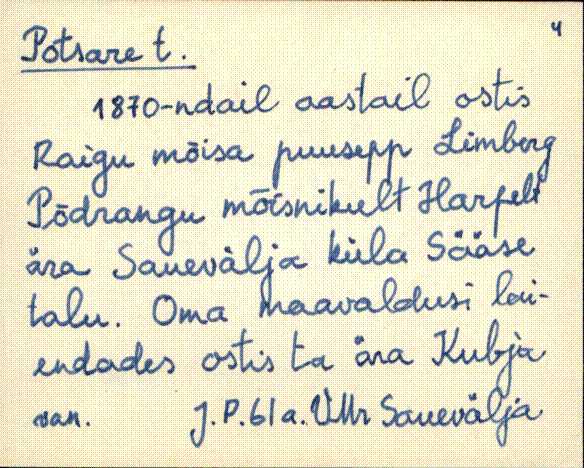 4
Potsare t.
1870-ndail aastail ostis
Raigu mõisa puusepp Limberg
Põdrangu mõisnikult Harpelt
ära Sauevälja küla Sääse
talu. Oma maavaldusi lai-
endades ostis ta ära Kubja
van. J.P. 61 a. VMr Sauevälja